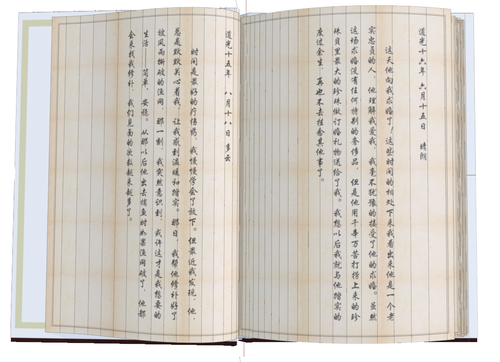 道光十六年 六月十五日 晴朗
这天他向我求婚了，这些时间的相处下来我看出来他是一个老
实忠良的人，他理解我爱我，我毫不犹豫的接受了他的求婚。虽然
这场求婚没有任何特别的奢侈品，但是他用千辛万苦打捞上来的珍
珠贝里最大的珍珠做订婚礼物送给了我。我想以后我就与他踏实的
度过余生，再也不去挂念其他事了。
道光十五年 八月十八 多云
时间是最好的疗伤药，我慢慢学会了放下。但最近我发现，他
总是默默关心着我，让我感到温暖和踏实。那日，我帮他修补好了
被风雨撕破的渔网，那一刻，我突然意识到，我许这才是我想要的
生活，简单，安稳。从那以后他出去捕鱼时如果渔网破了，他都
会来找我修补，我们见面的次数越来越多了。